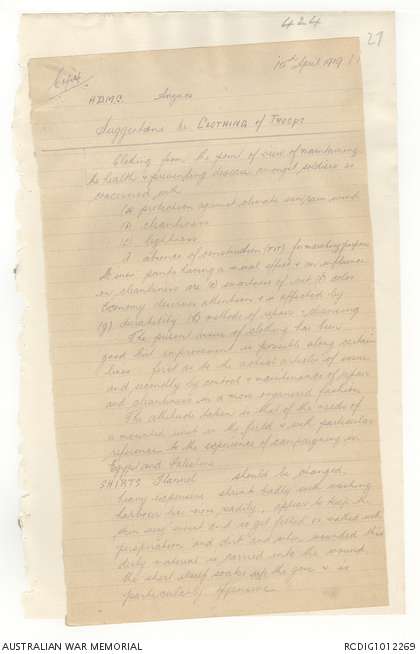 29
Copy
15th April 1919
ADMS. Anzac
Suggestions re CLOTHING of TROOPS
Clothing from the point of view of maintaining
the health & preventing disease amongst soldiers is
concerned with
(a) protection against climate sun, rain, wind
(b) cleanliness
(c) lightness
d) absence of constriction for marching purposes
points having a moral effect & an influence
on cleanliness are (e) smartness of cut (f) color
Economy deserves attention & is affected by
(g) durability (h) methods of repair & cleansing
The present issue of clothing has been
good but improvement is possible along certain
lines first as to the actual articles of issue
and secondly by control & maintenance of repair
and cleanliness in a more organised fashion
The attitude taken is that of the needs of
a mounted unit in the field & with particular
reference to the experience of campaigning in
Egypt and Palestine
SHIRTS Flannel should be changed,
heavy expensive shrink badly with washing
harbour lice very readily, appear to keep the
skin very moist and so get soaked with
perspiration and dirt and when wounded this
dirty material is carried into the wound
the short sleeve soaks up the gore & is
particularly offensive
AUSTRALIAN WAR MEMORIAL
RCDIG1012269